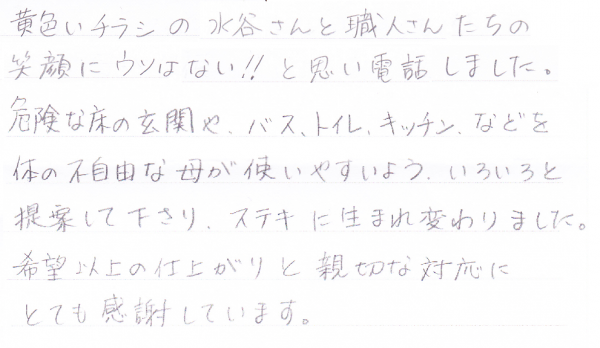 黄色いチラシの水谷さんと職人さんたちの
笑顔にウソはない!!と思い電話しました。
危険な床の玄関や、バス、トイレ、キッチン、などを
体の不自由な母が使いやすいよう、いろいろと
提案して下さり、ステキに生まれ変わりました。
希望以上の仕上がりと親切な対応に
とても感謝しています。